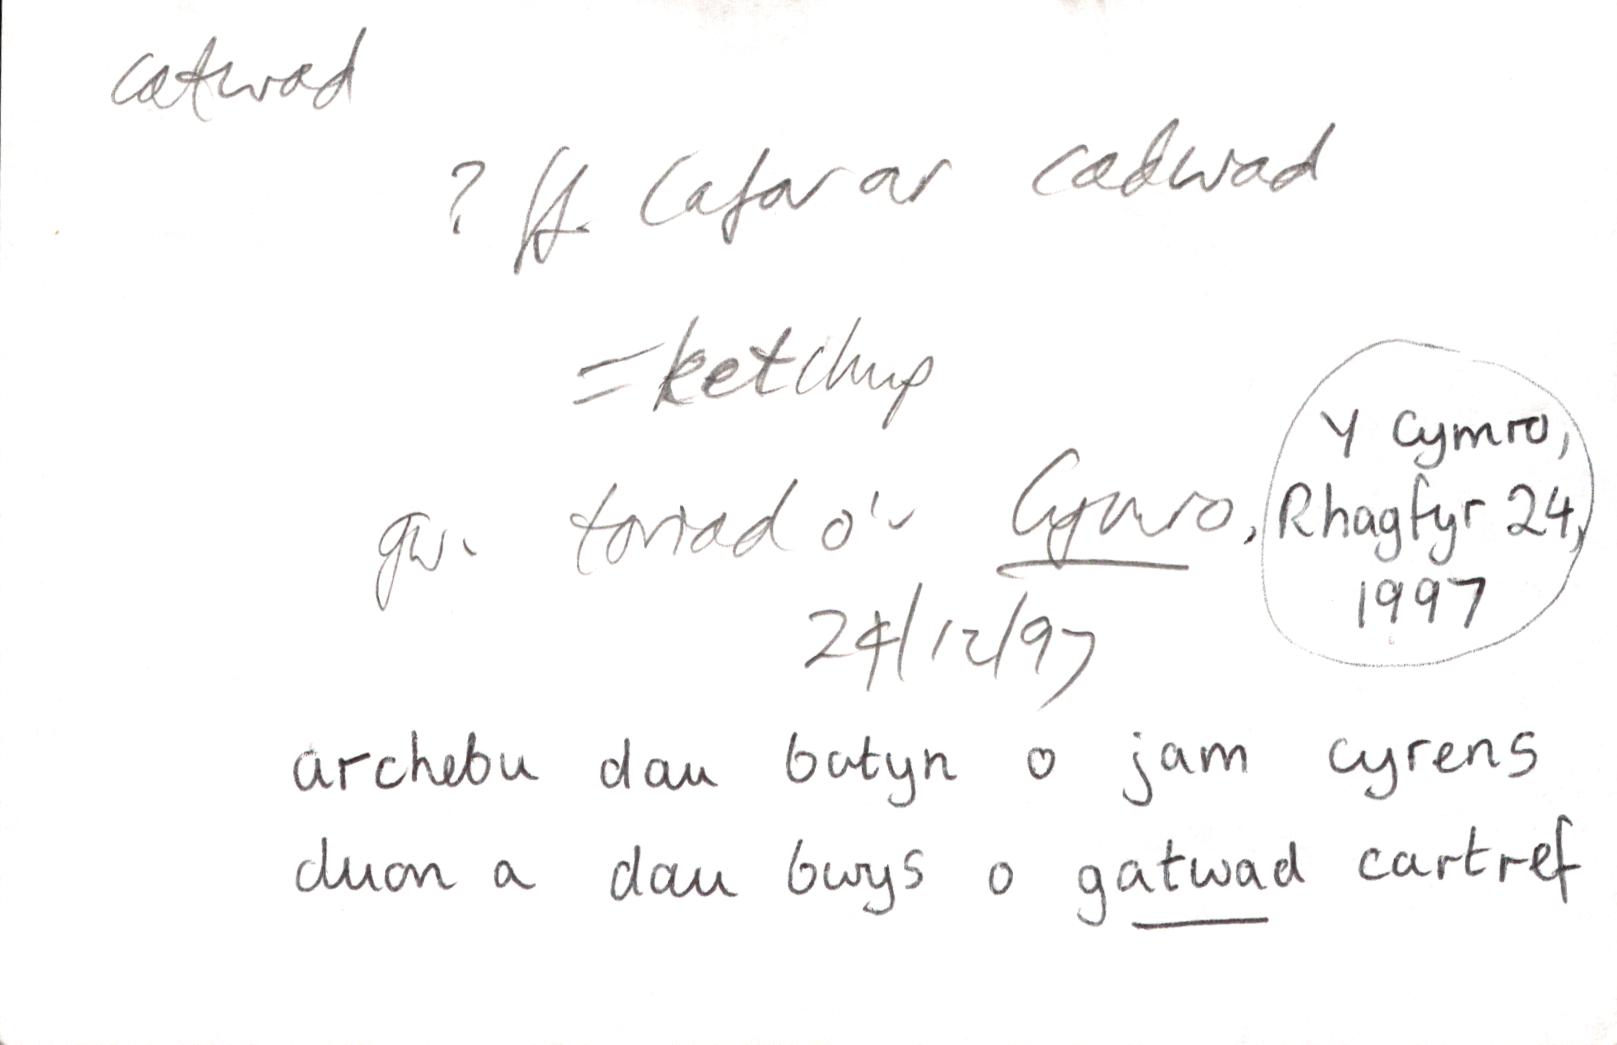 catwad
? ff. lafar ar cadwad
= ketchup
gw. toriad o'r Cymro,
24/12/97
Y Cymro,
Rhagfyr 24,
1997
archebu dau botyn o jam cyrens
duon a dau bwys o gatwad cartref